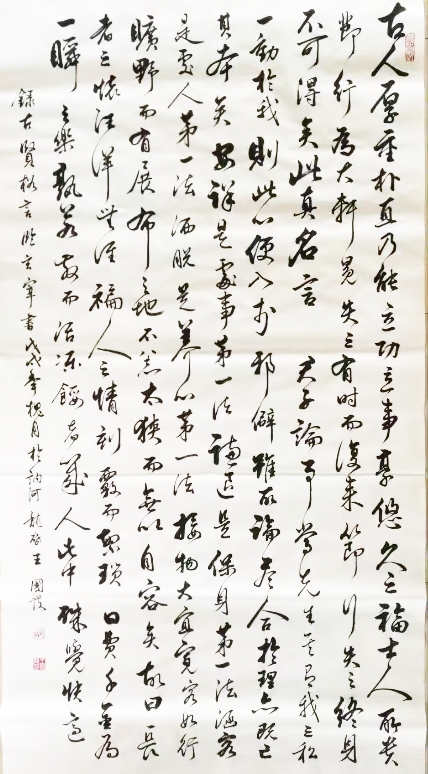 古人厚重朴直乃能立功立事享悠久之福士人所贵
节行为大轩冕失之有时而复来节行失之终身
不可得矣此真名言 君子论事当先去其有我之私
一动于我则此心便入于邪僻虽所论尽合于理亦既已
其本矣安详是处事第一法谦退是保身第一法涵容
是处人第一法洒脱是养心第一法接物大宜宽容如行
旷野而有展布之地不然太狭而无以自容矣故曰长
者之怀汪洋 福人之情刻覈而烦琐 日费千金为
一瞬之乐孰若散而活冻馁者几人 此中殊觉快
录古贤格言 书戊戌年槐月于讷河 王国